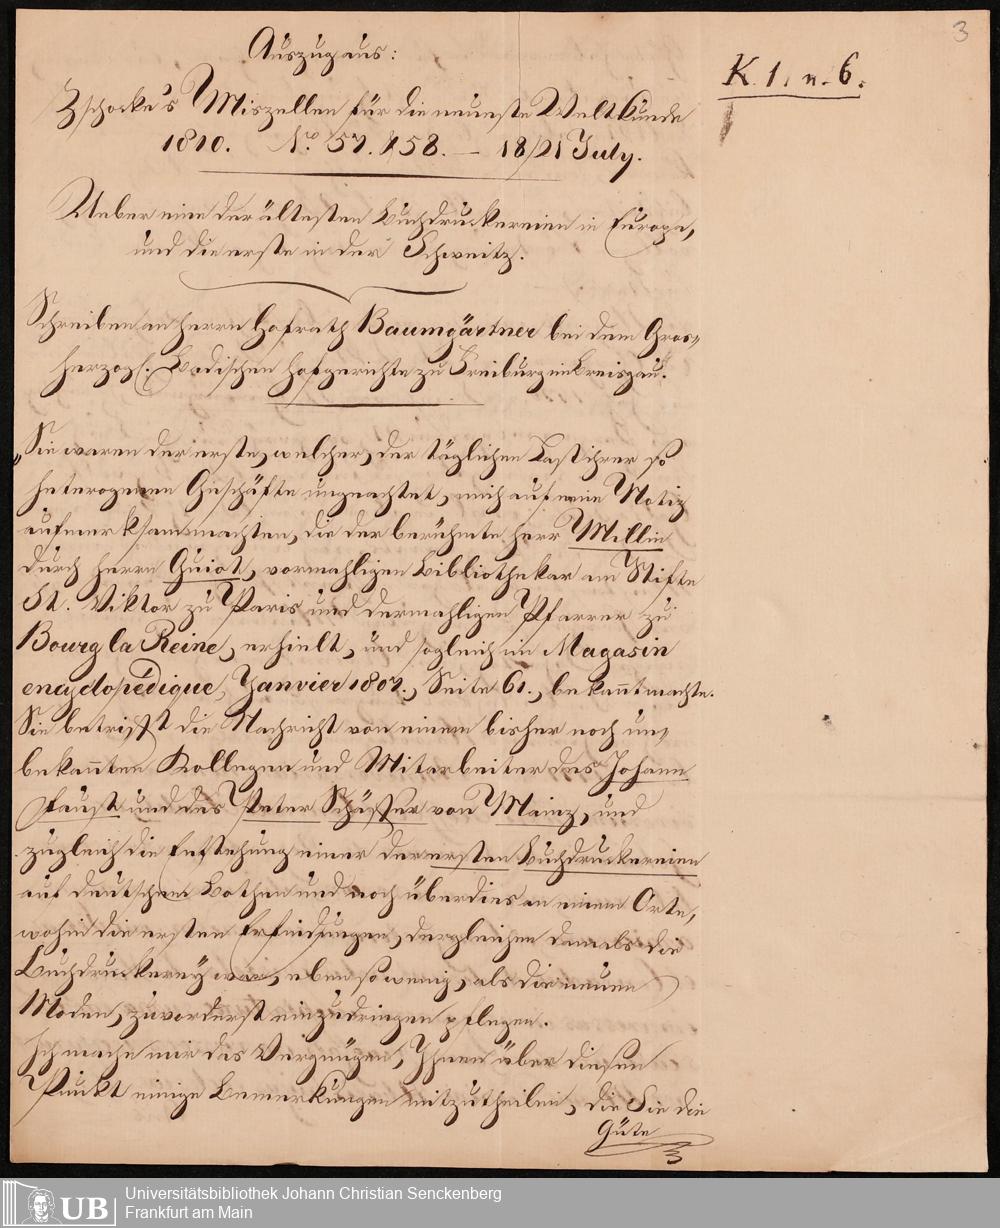 3
K. 1. n. 6.
Auszug aus:
Zschocke's Miszellen für die neueste Weltkunde
1810. No. 57. & 58. — 18/21 July.
Ueber eine der ältesten Buchdruckereien in Europa,
und die erste in der Schweitz.
Schreiben an Herrn Hofrath Baumgärtner bei dem Gros-
herzogl. Badischen Hofgerichte zu Freiburg im Breisgau.
„Sie waren der erste, welcher, der täglichen Last ihrer so
heterogenen Geschäfte ungeachtet, mich auf eine Notiz
aufmerksam machten, die der berühmte Herr Millin
durch Herrn Guiot, vormahligen Bibliothekar am Stifte
St. Viktor zu Paris und dermahligen Pfarrer zu
Bourg la Reine, erhielt, und sogleich im Magasin
encyclopédique, Janvier 1807., Seite 61., bekannt machte.
Sie betrifft die Nachricht von einem bisher noch un-
bekannten Kollegen und Mitarbeiter des Johann
Faust und des Peter Schäffer von Mainz, und
zugleich die Entstehung einer der ersten Buchdruckereien
auf deutschem Boden und noch überdies an einem Orte,
wohin die ersten Erfindungen, dergleichen damals die
Buchdruckerey war, eben so wenig, als die neuen
Moden, zuvorderst einzudringen pflegen.
Ich mache mir das Vergnügen, Ihnen über diesen
Punkt einige Bemerkungen mitzutheilen, die Sie die
Güte
UB
Universitätsbibliothek Johann Christian Senckenberg
Frankfurt am Main